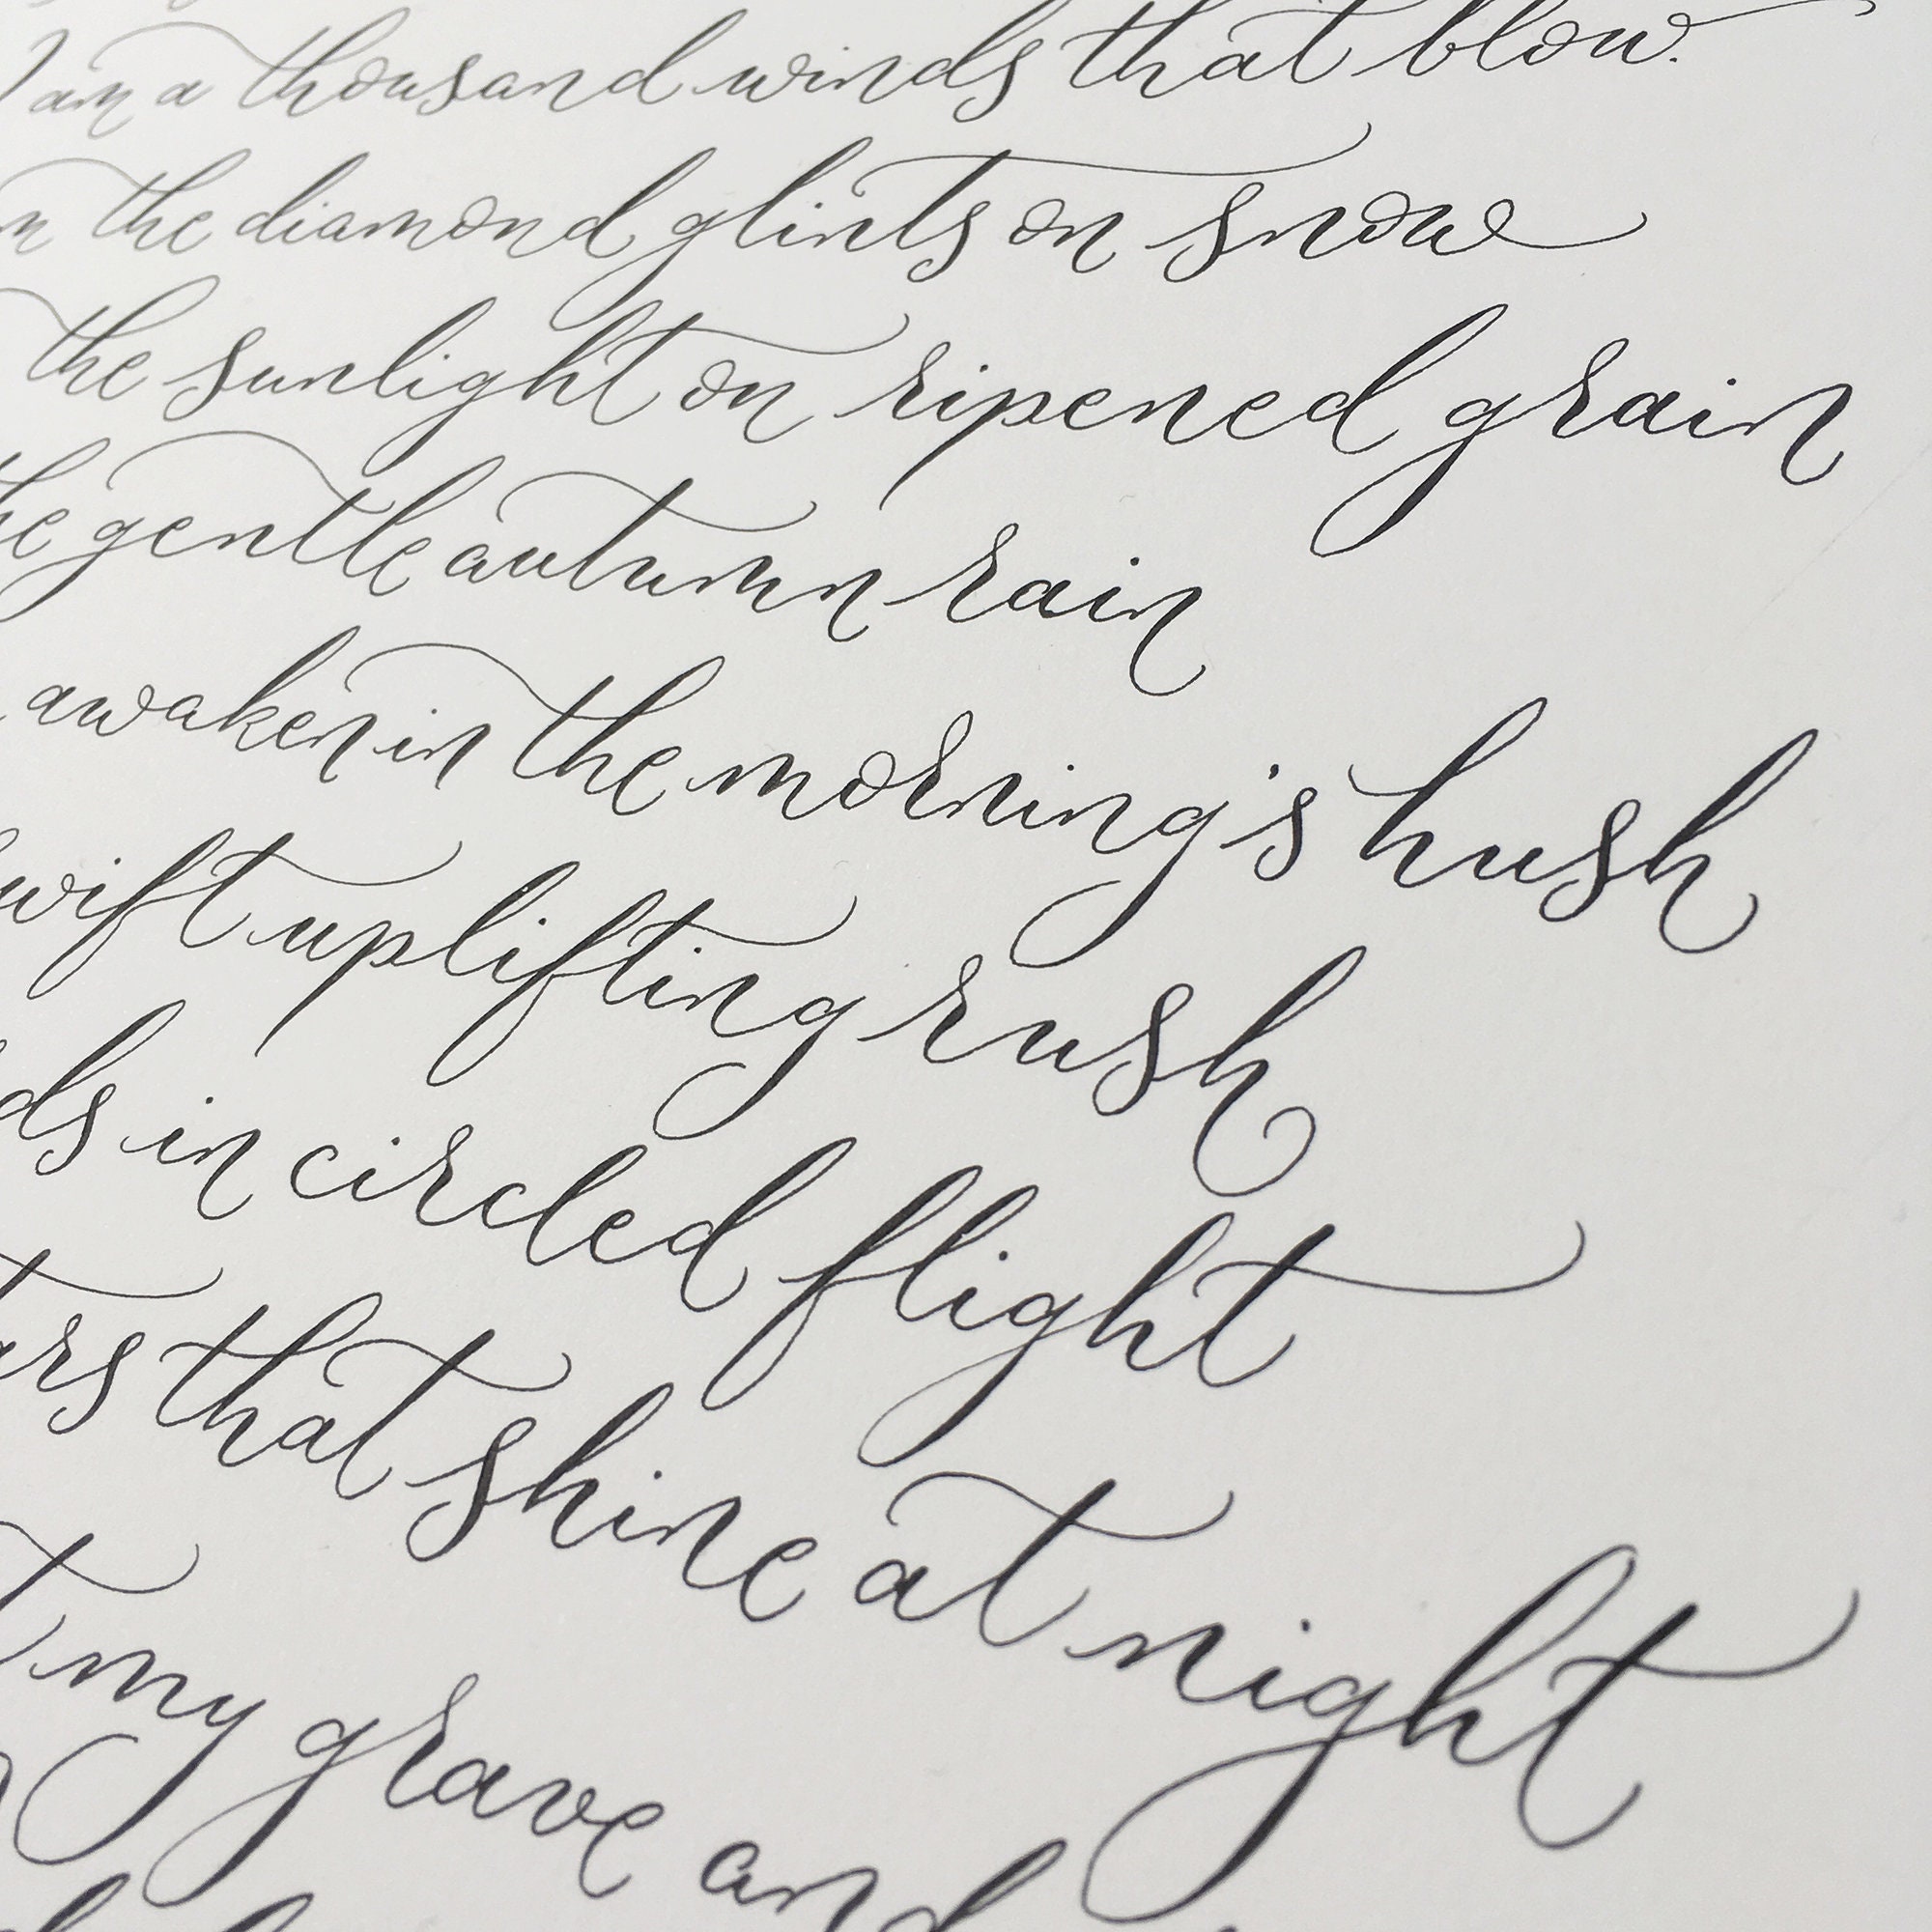 I am a thousand winds that blow.
the diamond glints on snow
the sunlight on ripened grain
the gentle autumn rain
awaken in the morning's hush
swift uplifting rush
in circled flight
that shine at night
my grave and